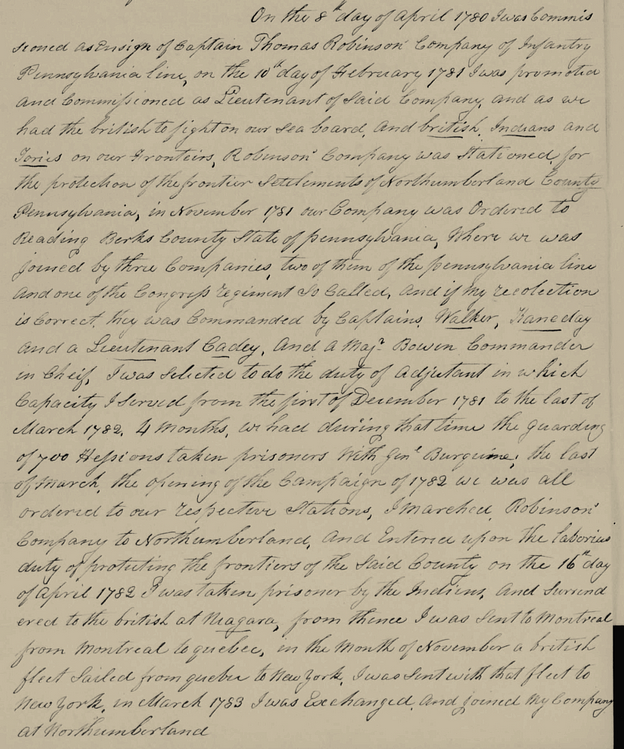 On the 8th day of April 1780 I was Commis
sioned as Ensign of Captain Thomas Robinson' Company of Infantry
Pennsylvania line, on the 10th day of February 1781 I was promoted
and Commissioned as Lieutenant of Said Company, and as we
had the british to fight on our Sea board, and british, Indians and
Tories on our Frontiers, Robinson' Company was Stationed for
the protection of the frontier Settlements of Northumberland County
Pennsylvania, in November 1781 our Company was Ordered to
Reading Berks County State of pennsylvania, Where we was
joined by three Companies, two of them of the pennsylvania line
and one of the Congress regiment So Called, and if My recolection
is Correct, they was Commanded by Captains Walker, Kaneday
and a Lieutenant Cadey, And a Majr Bowen Commander
in Cheif, I was Selected to do the duty of Adjutant in which
Capacity I Served from the first of December 1781 to the last of
March 1782, 4 Months, we had during that time the guarding
of 700 Hessions taken prisoners With Genl Burguine, the last
of March, the opening of the Campaign of 1782 we was all
ordered to our respective Stations, I marched Robinson'
Company to Northumberland, And Entered upon the laborius
duty of protecting the frontiers of the Said County on the 16th day
of April 1782 I was taken prisoner by the Indians, And Surrend
ered to the british at Niagara, from thence I was Sent to Montreal
from Montreal to quebec, in the Month of November a british
fleet Sailed from quebec to New york, I was Sent with that fleet to
New york, in March 1783 I was Exchanged, And joined My Company
at Northumberland